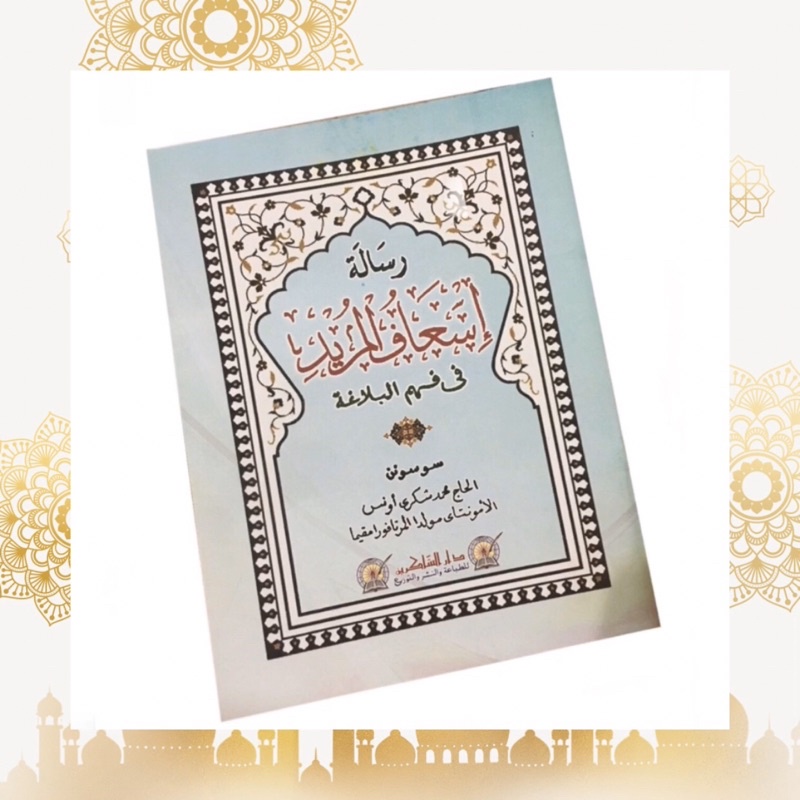 رسالة
إسعاف المريد
فى فهم البلاغة
سوسونن
الحاج محمد شكري أونس
الأمونتاى مولدا المرتافورا مقيما
دار الشاكرين
للطباعة والنشر والتوزيع